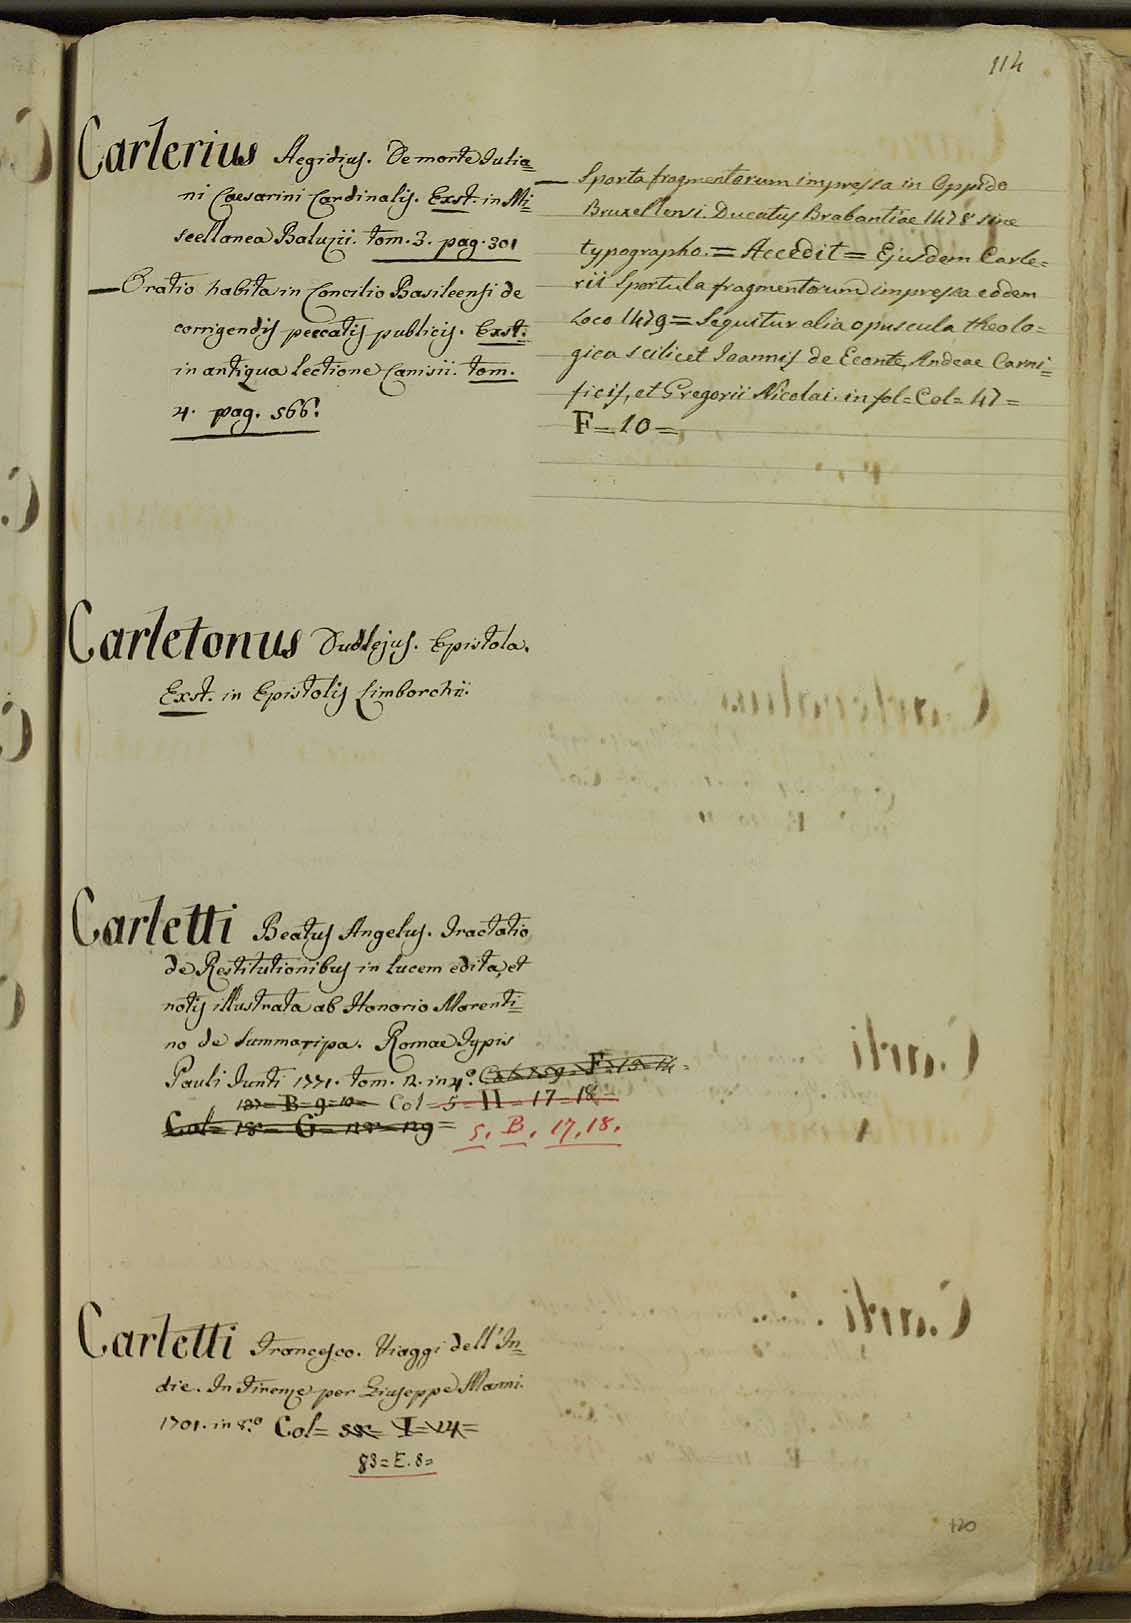 114
Carlerius Aegidius. De morte Julia=
ni Caesarini Cardinalis. Exst. in Mi=
scellanea Baluzii. tom. 3. pag. 301
— Oratio habita in Concilio Basileensi de
corrigendis peccatis publicis. Exst.
in antiqua lectione Canisii. tom.
4. pag. 566.
— Sporta fragmentorum impressa in Oppido
Bruxellensi Ducatus Brabantiae 1478 sine
typographo. = Accedit = Ejusdem Carle=
rii Sportula fragmentorum impressa eodem
Loco 1479 = Sequitur alia opuscula theolo=
gica scilicet Joannis de Econte, Andeae Carni=
ficis, et Gregorii Nicolai. in fol = Col = 47 =
F = 10 =
Carletonus Dudlejus. Epistola.
Exst. in Epistolis Limborchii.
Carletti Beatus Angelus. Tractatio
de Restitutionibus in lucem edita, et
notis illustrata ab Honorio Marenti=
no de Summaripa. Romae Typis
Pauli Junti 1771. tom. 2. in 4.º
137 = B = 9 = 10 = Col = 5 = H = 17 = 18 =
Col = 18 = G = 128 = 129 = 5. B. 17, 18.
Carletti Francesco. Viaggi dell'In=
die. In Firenze per Giuseppe Manni.
1701. in 8.º Col = I = 24 =
83 = E. 8 =
120